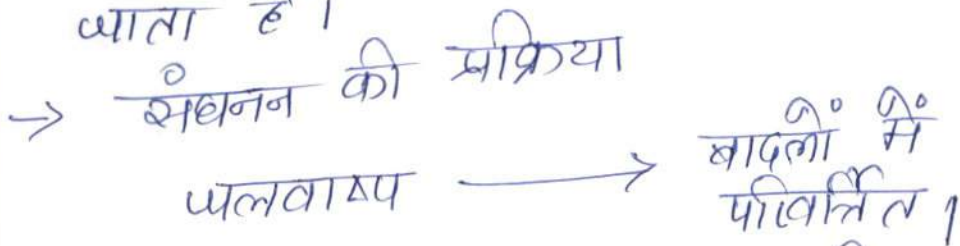 जाता है।
→ संघनन की प्रक्रिया
जलवाष्प → बादलों में
परिवर्तित।